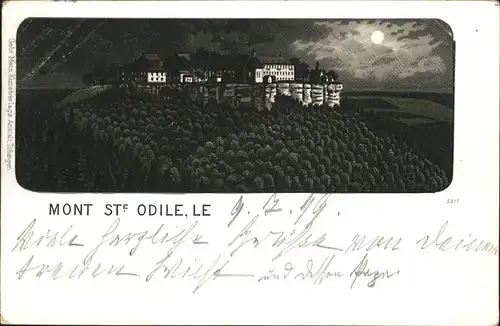 Gebr. Metz, Kunstverlags-Anstalt, Tübingen.
MONT STE ODILE, LE 9. 7. 99.
5311
Viele herzliche Grüsse von Deinem
treuen und dessen Papa.